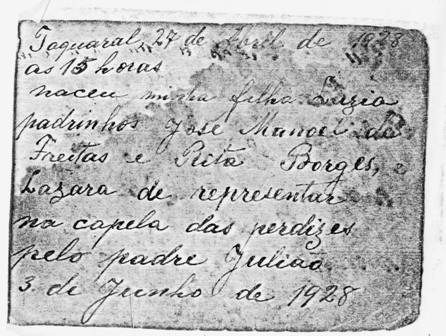 Taquaral 27 de Abril de 1928
as 15 horas
naceu minha filha Luzia
padrinhos José Manoel de
Freitas e Rita Borges,
Lazara de representar
na capela das perdizes
pelo padre Julião
3 de Junho de 1928